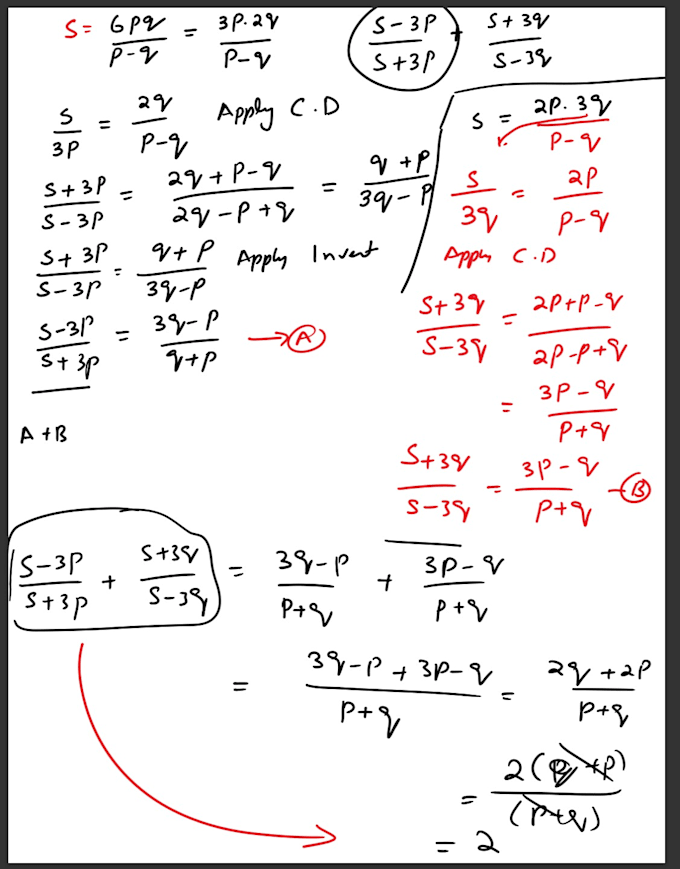 S = 6pq/p-q = 3p.2q/p-q
S-3p/S+3p + S+3q/S-3q
S/3p = 2q/p-q Apply C.D
S+3p/S-3p = 2q+p-q/2q-p+q = q+p/3q-p
S+3p/S-3p = q+p/3q-p Apply Invert
S-3p/S+3p = 3q-p/q+p → A
S = 2p.3q/p-q
S/3q = 2p/p-q
Apply C.D
S+3q/S-3q = 2p+p-q/2p-p+q
= 3p-q/p+q
S+3q/S-3q = 3p-q/p+q - B
A+B
S-3p/S+3p + S+3q/S-3q = 3q-p/p+q + 3p-q/p+q
= 3q-p+3p-q/p+q = 2q+2p/p+q
= 2(q+p)/(p+q)
= 2